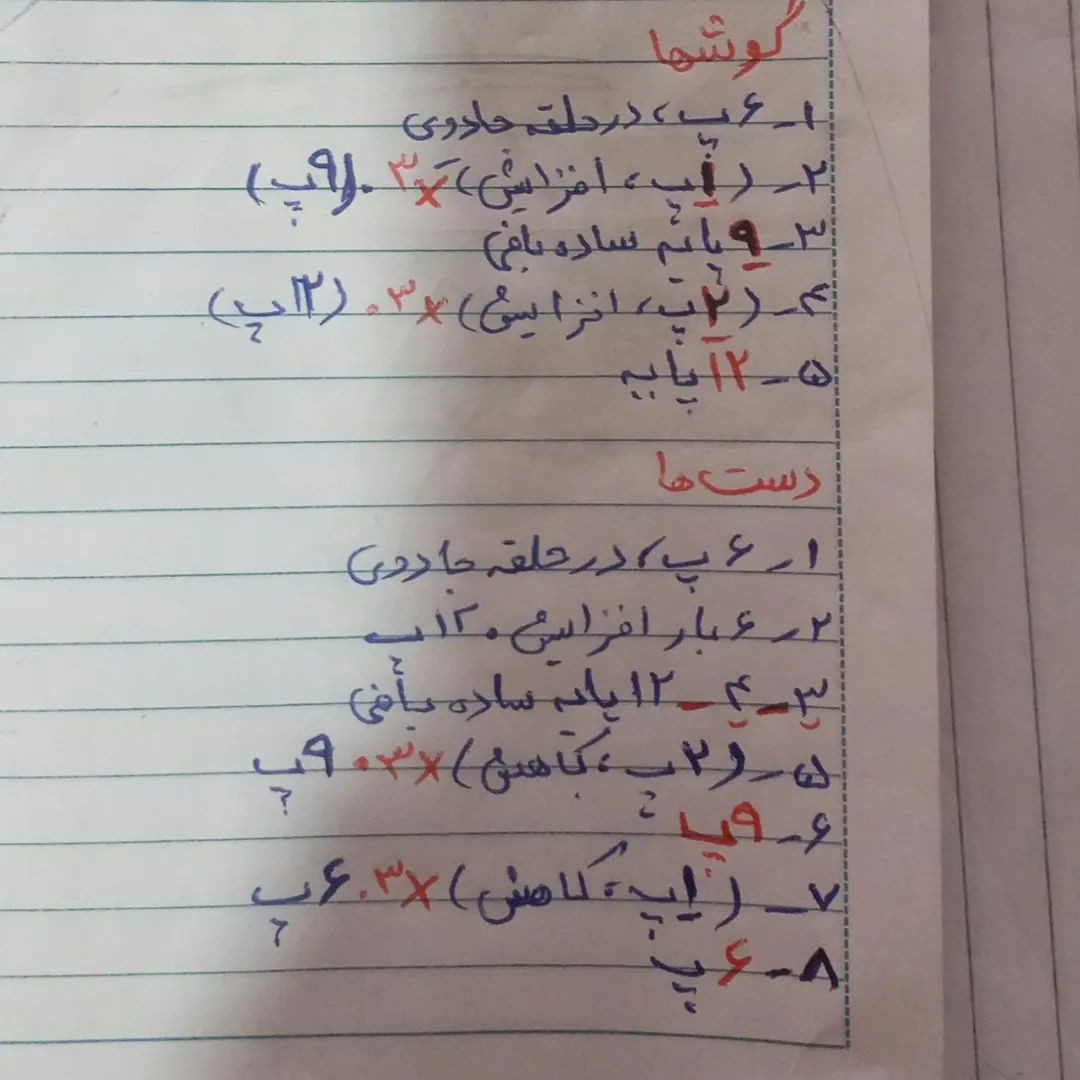 گوشها
۱- ۶پ، در حلقه جادوی
۲- (۱پ، افزایش) ×۳. (۹پ)
۳- ۹ پایه ساده بافی
۴- (۲پ، افزایش) ×۳. (۱۲پ)
۵- ۱۲ پایه
دست ها
۱ـ ۶ پ، در حلقه جادوی
۲ـ ۶ بار افزایش. ۱۲پ
۳-۴- ۱۲ پایه ساده بافی
۵- (۲پ، کاهش) ×۳. ۹پ
۶- ۹پ
۷- (۱پ، کاهش) ×۳. ۶پ
۸- ۶پ